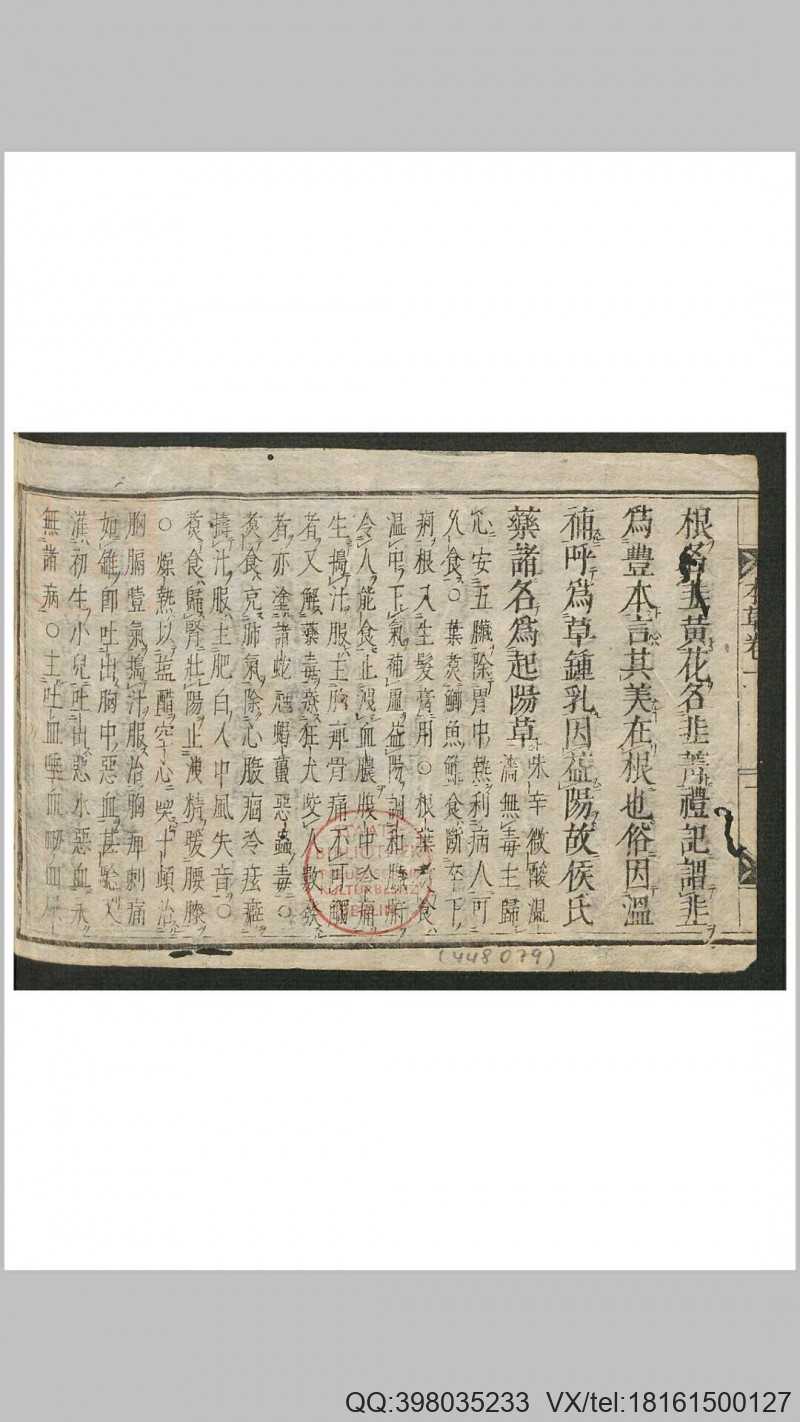 根名韭黃花名韭菁禮記謂韭
爲豐本言其美在根也俗因溫
補呼爲草鍾乳因益陽故侯氏
藥諸名爲起陽草
味辛微酸溫
濇無毒主歸
心安五臟除胃中熱利病人可
久食○葉煮鯽魚鮓食斷卒下
痢根入生髮膏用○根葉煮食
温中下氣補虛益陽調和臟腑
令人能食止洩血膿腹中冷痛
生搗汁服主胸痹骨痛不可觸
者又解藥毒療狂犬咬人數發
者亦塗諸蛇虺蝎蠆惡蟲毒○
煮食充肺氣除心腹痼冷痃癖
擣汁服主肥白人中風失音○
煮食歸腎壯陽止洩精暖腰膝
○煠熟以盐醋空心喫十頓治
胸膈噎氣搗汁服治胸痺刺痛
如錐卽吐出胸中惡血甚驗又
灌初生小兒吐出惡水惡血永
無諸病○主吐血唾血衄血尿
本草卷一
(448079)
QQ:398035233 VX/tel:18161500127